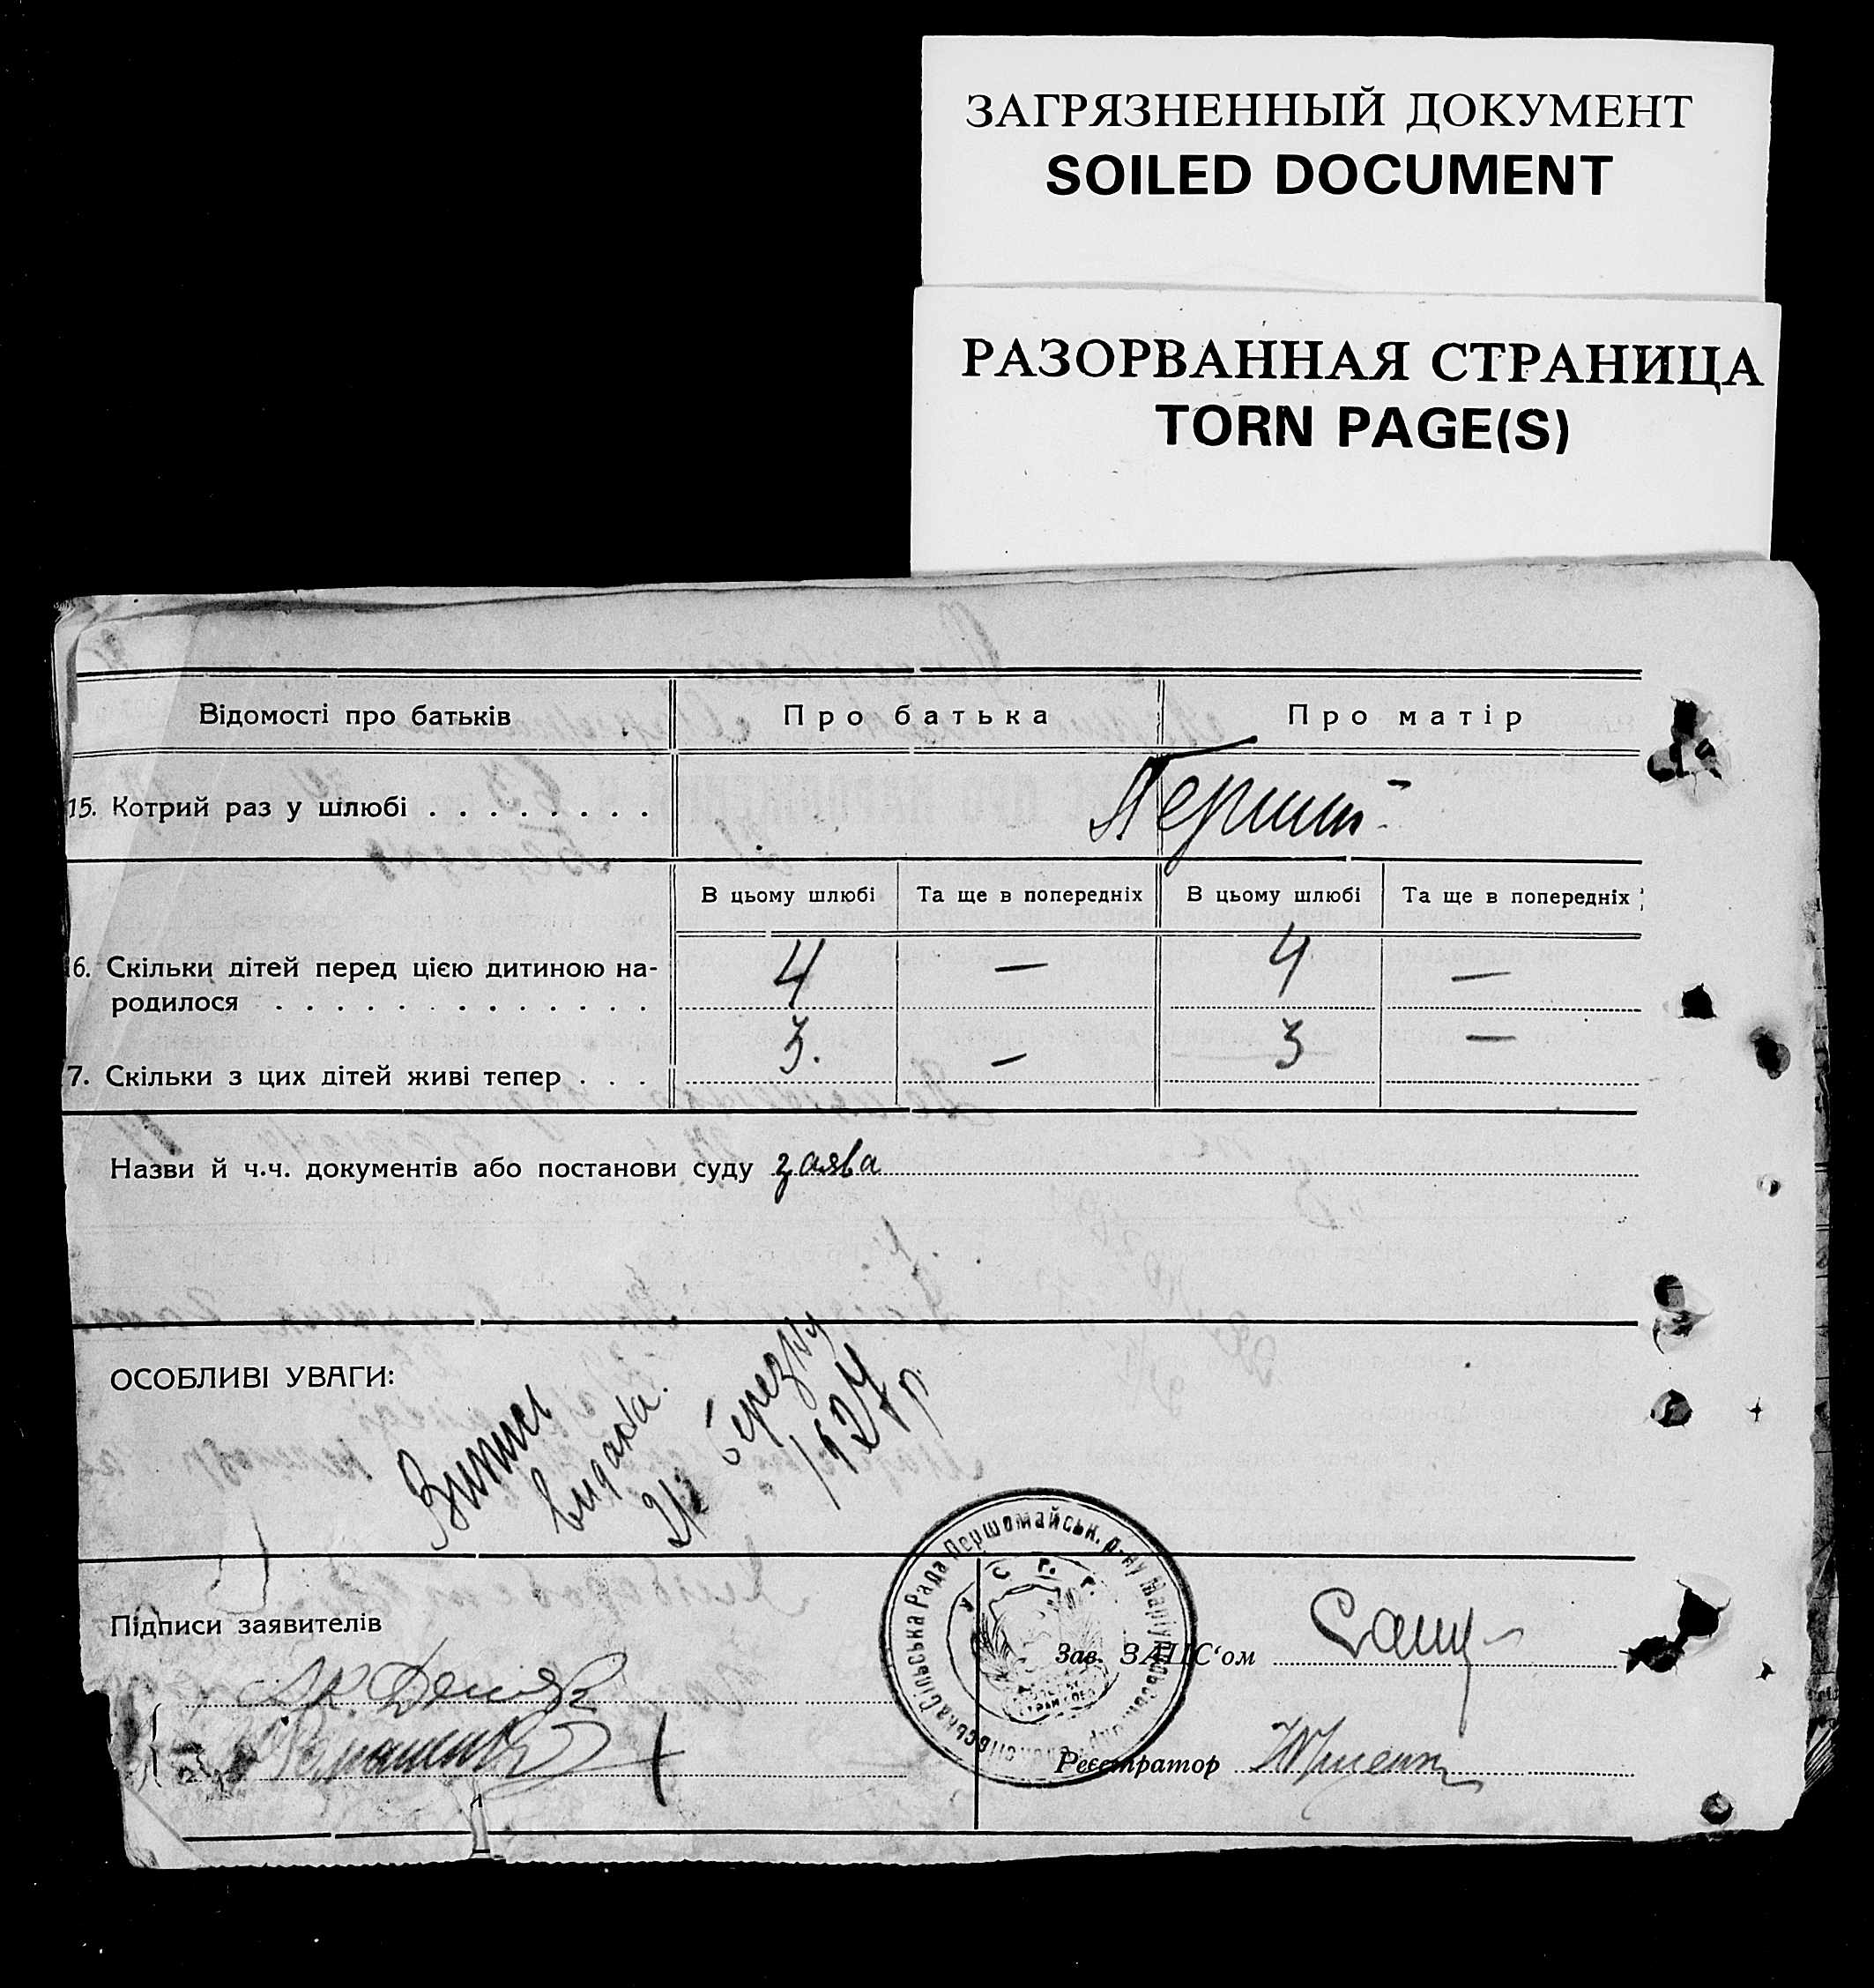 ЗАГРЯЗНЕННЫЙ ДОКУМЕНТ
SOILED DOCUMENT
РАЗОРВАННАЯ СТРАНИЦА
TORN PAGE(S)
Відомості про батьків Про батька Про матір
15. Котрий раз у шлюбі . . . . . . . . Перший
В цьому шлюбі Та ще в попередніх В цьому шлюбі Та ще в попередніх
6. Скільки дітей перед цією дитиною на- 4 — 4 —
родилося . . . . . . . . . . . . .
7. Скільки з цих дітей живі тепер . . . 3. — 3 —
Назви й ч.ч. документів або постанови суду заява
ОСОБЛИВІ УВАГИ:
Випись
видана
21 березня
1927 р
Сільська Рада Першомайськ. р-ну Маріупольськ. окр.
У С Р Р
Підписи заявителів
Зав. ЗАЦС‘ом
Реєстратор